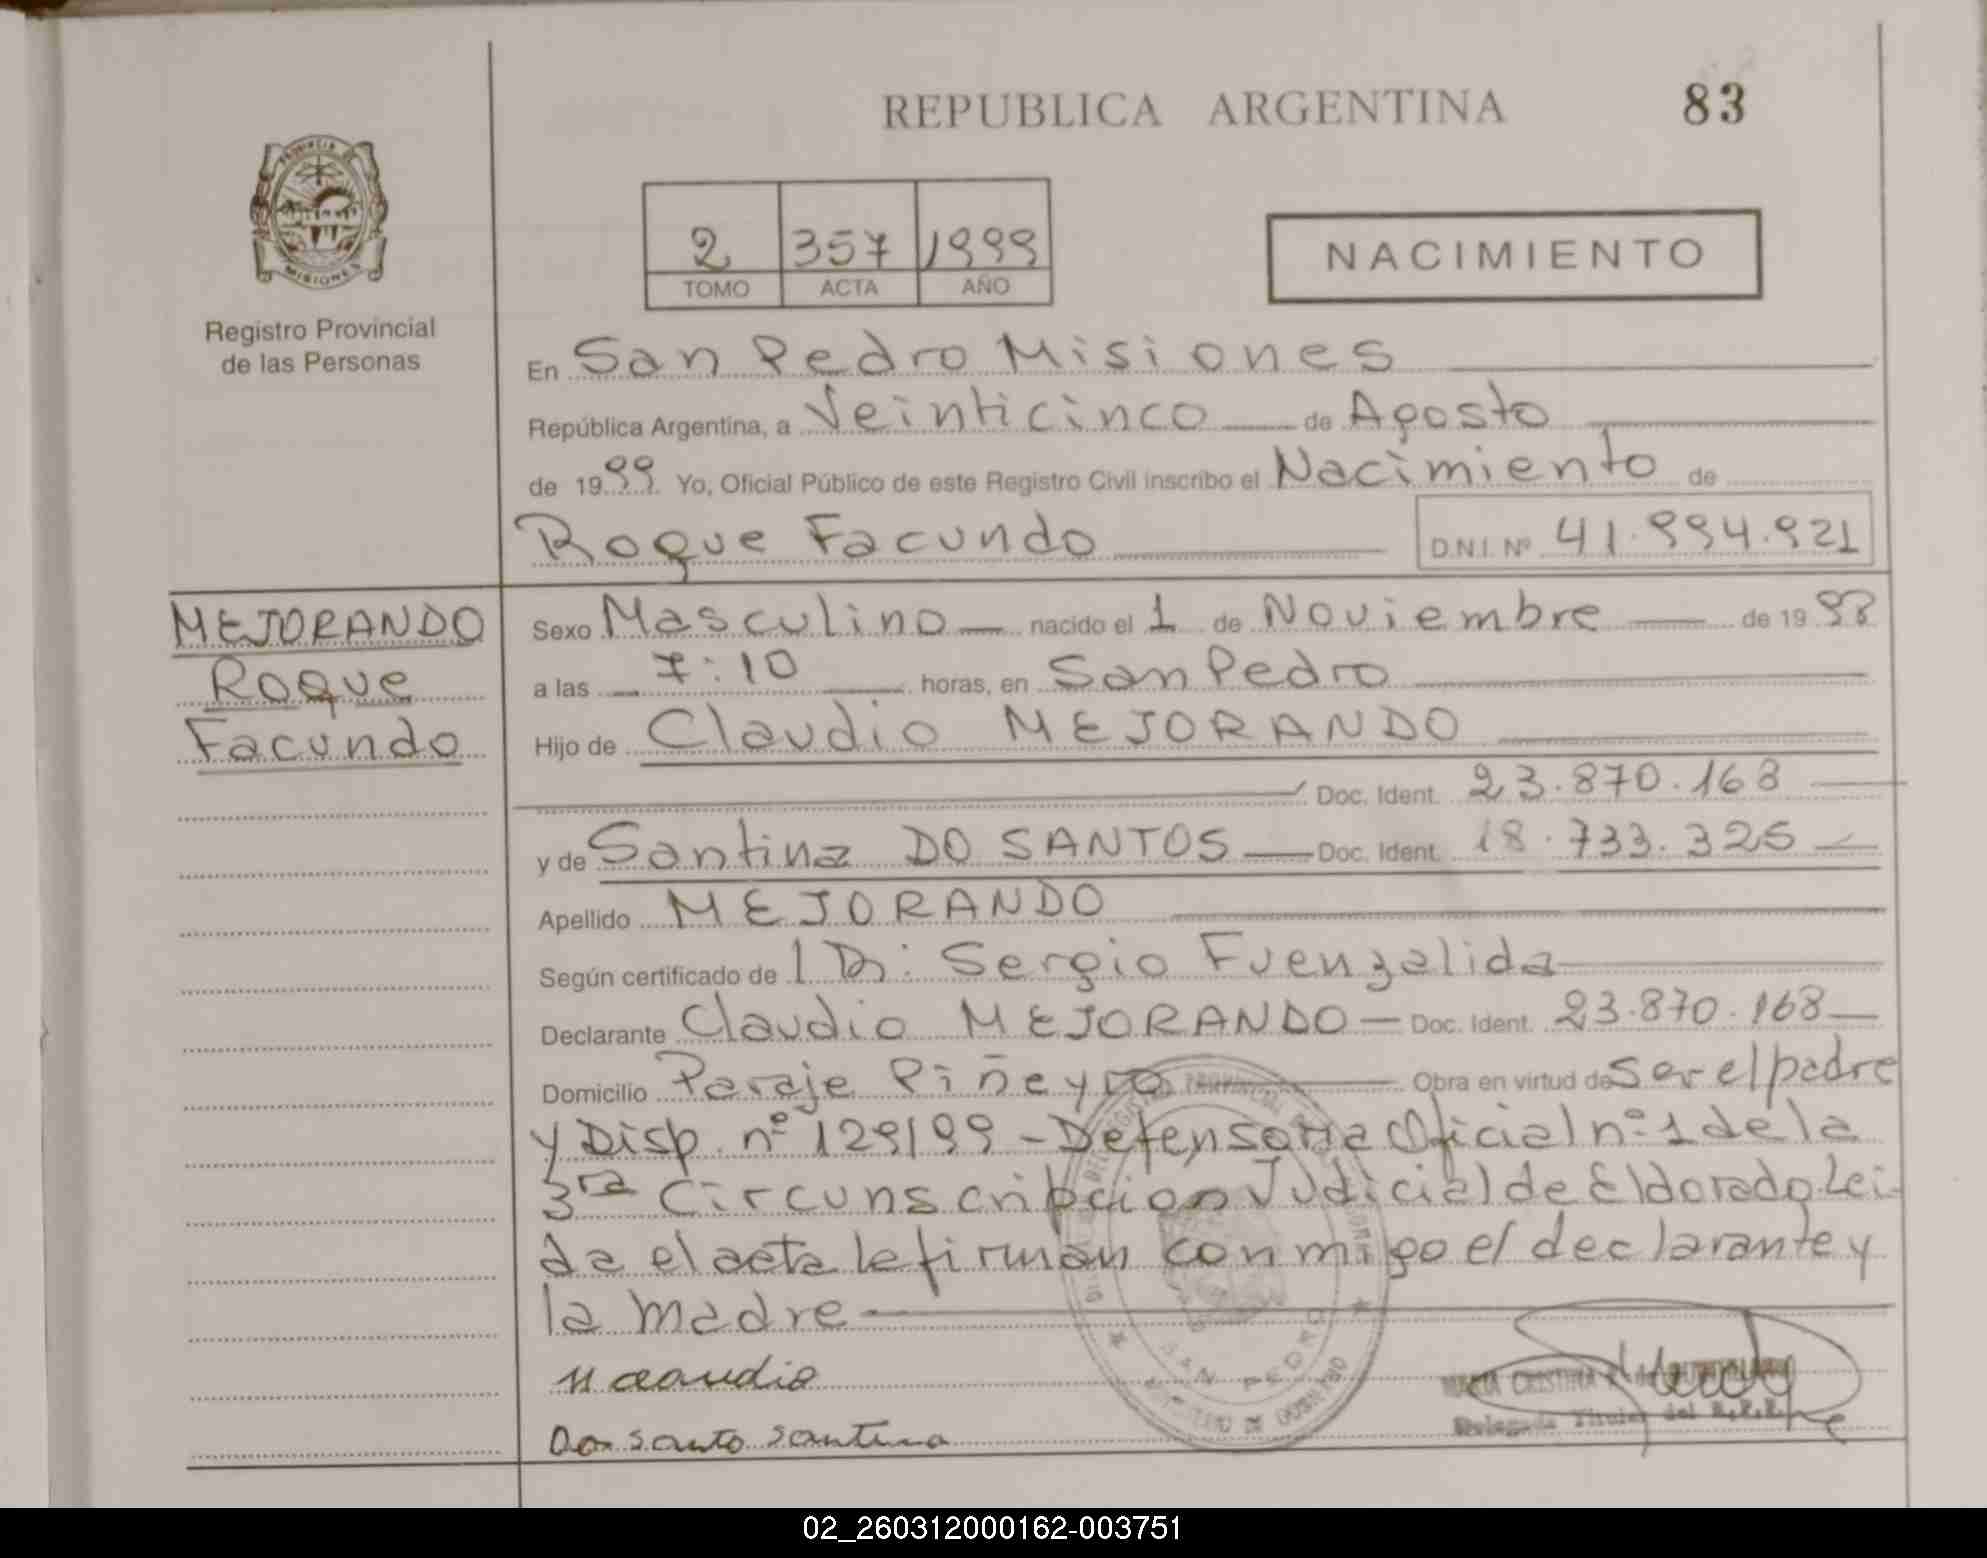 REPUBLICA ARGENTINA 83
PROVINCIA DE
MISIONES
Registro Provincial
de las Personas
2 357 1999
TOMO ACTA AÑO
NACIMIENTO
En San Pedro Misiones
República Argentina, a Veinticinco de Agosto
de 1999 Yo, Oficial Público de este Registro Civil inscribo el Nacimiento de
Roque Facundo D.N.I. Nº 41.994.921
MEJORANDO
Roque
Facundo
Sexo Masculino nacido el 1 de Noviembre de 1998
a las 7:10 horas, en San Pedro
Hijo de Claudio MEJORANDO
Doc. Ident. 23.870.168
y de Santina DO SANTOS Doc. Ident. 18.733.325
Apellido MEJORANDO
Según certificado de Dr: Sergio Fuenzalida
Declarante Claudio MEJORANDO Doc. Ident. 23.870.168
Domicilio Paraje Piñeyro Obra en virtud de Ser el padre
y Disp. nº 129/99 - Defensoria Oficial nº 1 de la
3ra Circunscripcion Judicial de Eldorado. Lei
da el acta le firman conmigo el declarante y
la madre
M claudio
Dos santo santina
SAN PEDRO
MARIA CRISTINA
Delegada Titular del R.P.P.
02_260312000162-003751